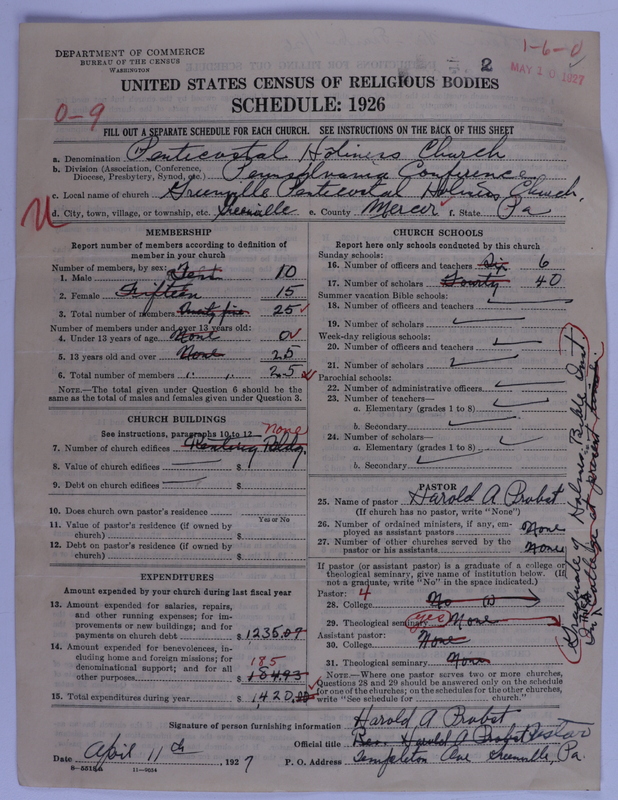 DEPARTMENT OF COMMERCE
BUREAU OF THE CENSUS
WASHINGTON
2
1-6-0
MAY 10 1927
UNITED STATES CENSUS OF RELIGIOUS BODIES
SCHEDULE: 1926
0-9
FILL OUT A SEPARATE SCHEDULE FOR EACH CHURCH. SEE INSTRUCTIONS ON THE BACK OF THIS SHEET
a. Denomination Pentecostal Holiness Church
b. Division (Association, Conference, Diocese, Presbytery, Synod, etc.) Pennsylvania Conference
c. Local name of church Greenville Pentecostal Holiness Church.
d. City, town, village, or township, etc. Greenville e. County Mercer f. State Pa
MEMBERSHIP
Report number of members according to definition of
member in your church
Number of members, by sex:
1. Male Ten 10
2. Female Fifteen 15
3. Total number of members Twenty five 25
Number of members under and over 13 years old:
4. Under 13 years of age None 0
5. 13 years old and over None 25
6. Total number of members " " 25
NOTE.—The total given under Question 6 should be
the same as the total of males and females given under Question 3.
CHURCH BUILDINGS
See instructions, paragraphs 10 to 12
7. Number of church edifices Renting Bldg. None
8. Value of church edifices $
9. Debt on church edifices $
10. Does church own pastor's residence
Yes or No
11. Value of pastor's residence (if owned by
church) $
12. Debt on pastor's residence (if owned by
church) $
EXPENDITURES
Amount expended by your church during last fiscal year
13. Amount expended for salaries, repairs,
and other running expenses; for im-
provements or new buildings; and for
payments on church debt $ 1235.07
14. Amount expended for benevolences, in-
cluding home and foreign missions; for
denominational support; and for all
other purposes 185 $ 184.93
15. Total expenditures during year $ 1,420.00
CHURCH SCHOOLS
Report here only schools conducted by this church
Sunday schools:
16. Number of officers and teachers Six 6
17. Number of scholars Fourty 40
Summer vacation Bible schools:
18. Number of officers and teachers
19. Number of scholars
Week-day religious schools:
20. Number of officers and teachers
21. Number of scholars
Parochial schools:
22. Number of administrative officers
23. Number of teachers—
a. Elementary (grades 1 to 8)
b. Secondary
24. Number of scholars—
a. Elementary (grades 1 to 8)
b. Secondary
PASTOR
25. Name of pastor Harold A Probst
(If church has no pastor, write "None")
26. Number of ordained ministers, if any, em-
ployed as assistant pastors None
27. Number of other churches served by the
pastor or his assistants None
If pastor (or assistant pastor) is a graduate of a college or
theological seminary, give name of institution below. (If
not a graduate, write "No" in the space indicated.)
Pastor: 4
28. College No (1)
29. Theological seminary (yes) None
Assistant pastor:
30. College None
31. Theological seminary None
NOTE.—Where one pastor serves two or more churches,
Questions 28 and 29 should be answered only on the schedule
for one of the churches; on the schedules for the other churches,
write "See schedule for church."
Graduate of Holiness Bible Inst.
In College at present time.
Signature of person furnishing information Harold A Probst
Official title Rev. Harold A Probst Pastor
Date April 11th, 1927 P. O. Address Templeton Ave Greenville, Pa.
8-5518a 11-9034